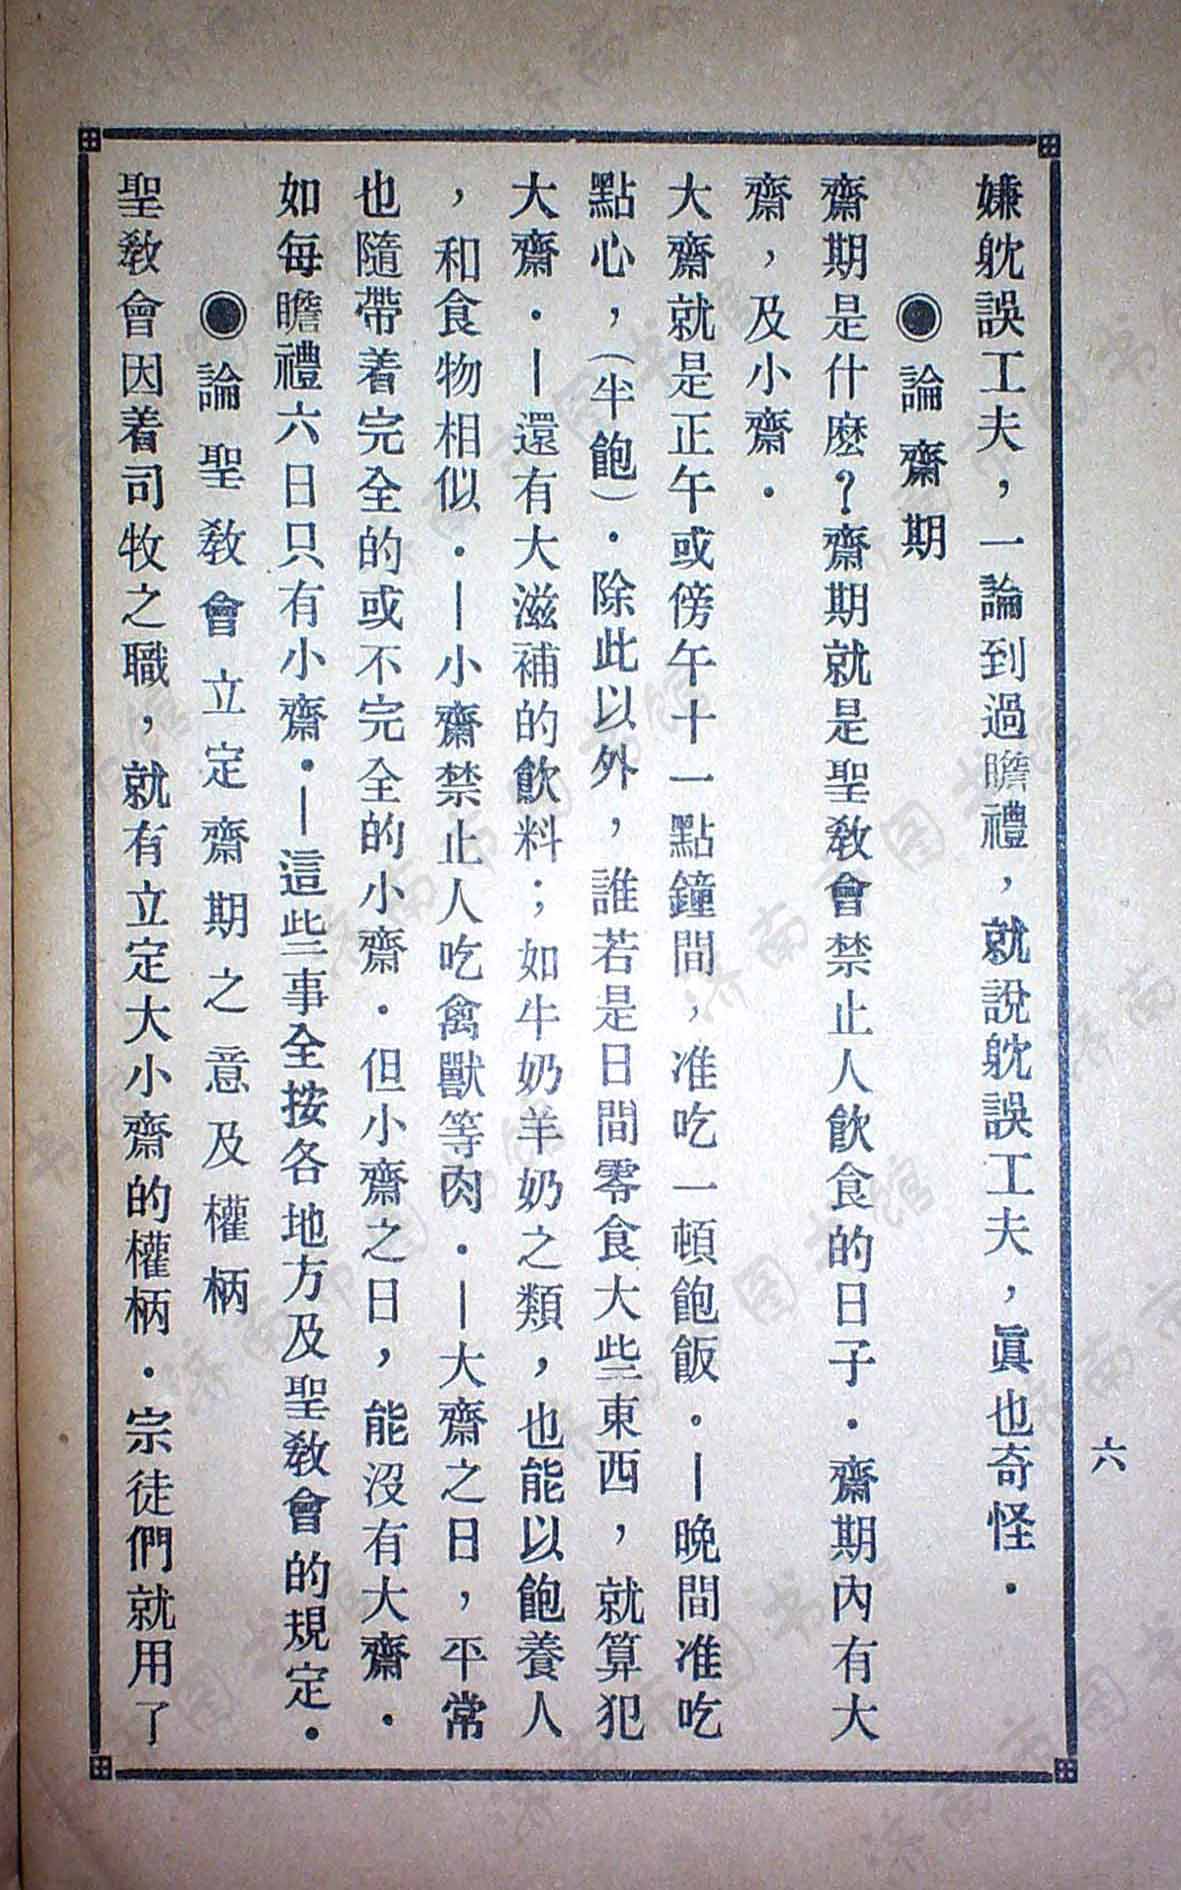 六
嫌躭誤工夫，一論到過瞻禮，就說躭誤工夫，眞也奇怪．
◉論齋期
齋期是什麽？齋期就是聖敎會禁止人飮食的日子．齋期內有大
齋，及小齋．
大齋就是正午或傍午十一點鐘間，准吃一頓飽飯。—晚間准吃
點心，（半飽）．除此以外，誰若是日間零食大些東西，就算犯
大齋．—還有大滋補的飮料；如牛奶羊奶之類，也能以飽養人
，和食物相似．—小齋禁止人吃禽獸等肉．—大齋之日，平常
也隨帶着完全的或不完全的小齋．但小齋之日，能沒有大齋．
如每瞻禮六日只有小齋．—這些事全按各地方及聖敎會的規定．
◉論聖敎會立定齋期之意及權柄
聖敎會因着司牧之職，就有立定大小齋的權柄．宗徒們就用了